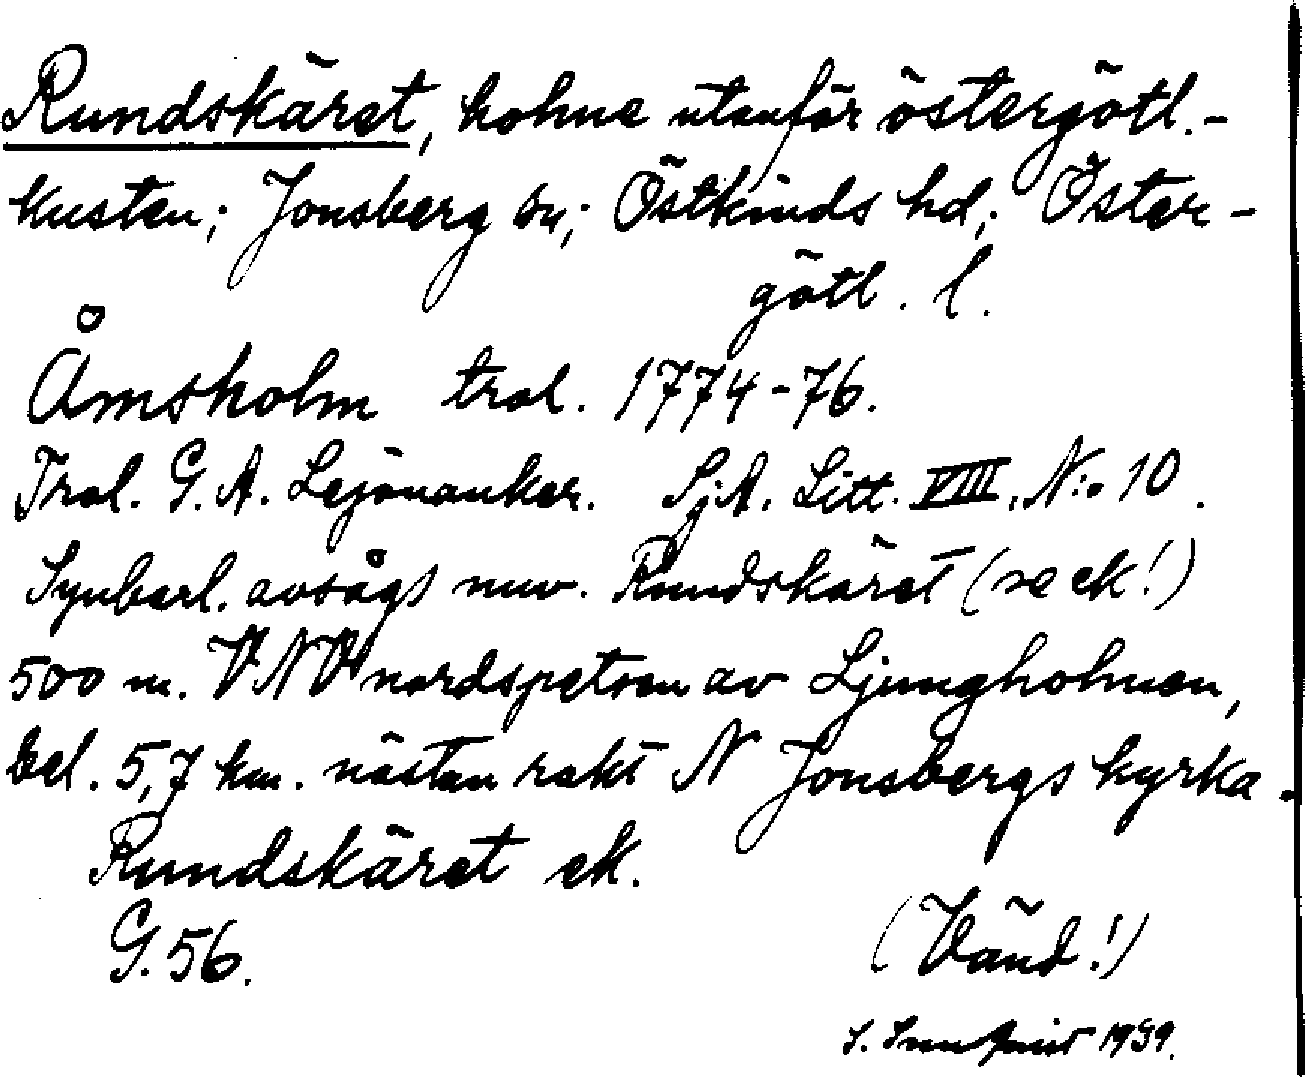 Rundskäret, holme utanför östergötl.-
kusten; Jonsberg sn; Östkinds hd; Öster-
götl. l.
Åmsholm trol. 1774-76.
Trol. G. A. Lejonanker. SjA. Litt. VIII. N:o 10.
Synbarl. avsågs nuv. Rundskäret (se ek!)
500 m. VNV nordspetsen av Ljungholmen,
bel. 5,7 km. nästan rakt N Jonsbergs kyrka.
Rundskäret ek.
G. 56.
(Vänd!)
1939.